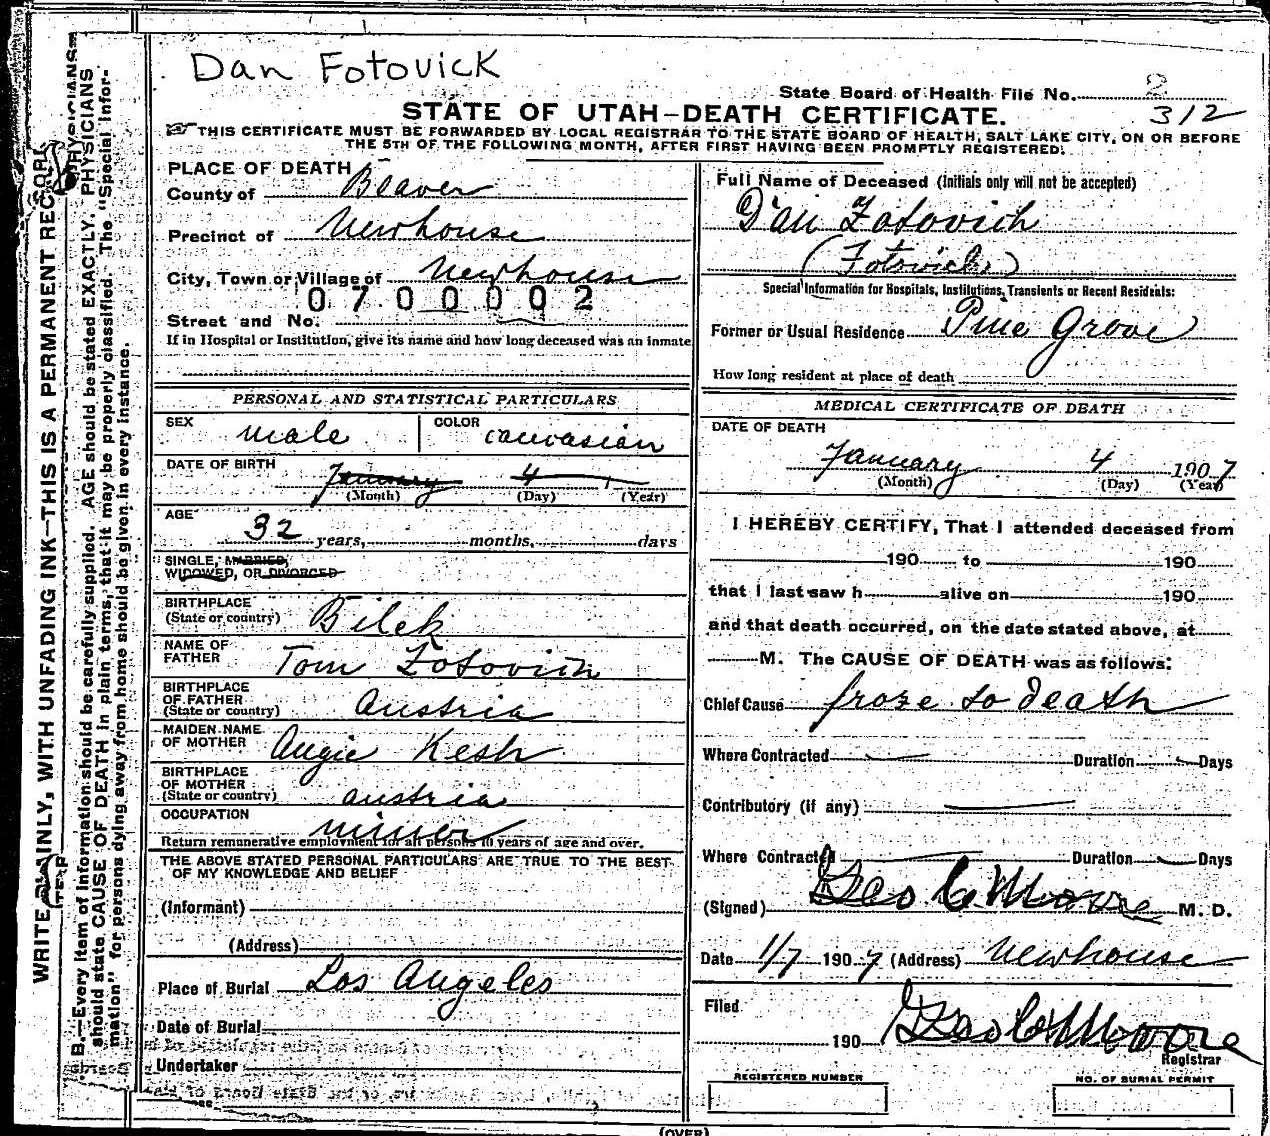 Dan Fotovick
State Board of Health File No. 2
312
STATE OF UTAH-DEATH CERTIFICATE.
THIS CERTIFICATE MUST BE FORWARDED BY LOCAL REGISTRAR TO THE STATE BOARD OF HEALTH, SALT LAKE CITY, ON OR BEFORE
THE 5TH OF THE FOLLOWING MONTH, AFTER FIRST HAVING BEEN PROMPTLY REGISTERED.
PLACE OF DEATH
County of Beaver
Precinct of Newhouse
City, Town or Village of Newhouse
0700002
Street and No.
If in Hospital or Institution, give its name and how long deceased was an inmate
Full Name of Deceased (Initials only will not be accepted)
Dan Fotovich
(Fotovick)
Special Information for Hospitals, Institutions, Transients or Recent Residents:
Former or Usual Residence Pine Grove
How long resident at place of death
PERSONAL AND STATISTICAL PARTICULARS
SEX male COLOR caucasian
DATE OF BIRTH January 4
(Month) (Day) (Year)
AGE 32 years, months, days
SINGLE, MARRIED,
WIDOWED, OR DIVORCED
BIRTHPLACE
(State or country) Bilek
NAME OF
FATHER Tom Fotovich
BIRTHPLACE
OF FATHER
(State or country) Austria
MAIDEN NAME
OF MOTHER Augie Kesh
BIRTHPLACE
OF MOTHER
(State or country) Austria
OCCUPATION
minor
Return remunerative employment for all persons 10 years of age and over.
THE ABOVE STATED PERSONAL PARTICULARS ARE TRUE TO THE BEST
OF MY KNOWLEDGE AND BELIEF
(Informant)
(Address)
Place of Burial Los Angeles
Date of Burial
Undertaker
MEDICAL CERTIFICATE OF DEATH
DATE OF DEATH
January 4 1907
(Month) (Day) (Year)
I HEREBY CERTIFY, That I attended deceased from
190 to 190
that I last saw h alive on 190
and that death occurred, on the date stated above, at
M. The CAUSE OF DEATH was as follows:
Chief Cause froze to death
Where Contracted Duration Days
Contributory (if any)
Where Contracted Duration Days
(Signed) Geo C Moore M. D.
Date 1/7 1907 (Address) Newhouse
Filed
190 Geo C Moore
Registrar
REGISTERED NUMBER NO. OF BURIAL PERMIT
(OVER)
WRITE PLAINLY, WITH UNFADING INK-THIS IS A PERMANENT RECORD
B.-Every item of information should be carefully supplied. AGE should be stated EXACTLY. PHYSICIANS
should state CAUSE OF DEATH in plain terms, that it may be properly classified. The "Special Infor-
mation" for persons dying away from home should be given in every instance.